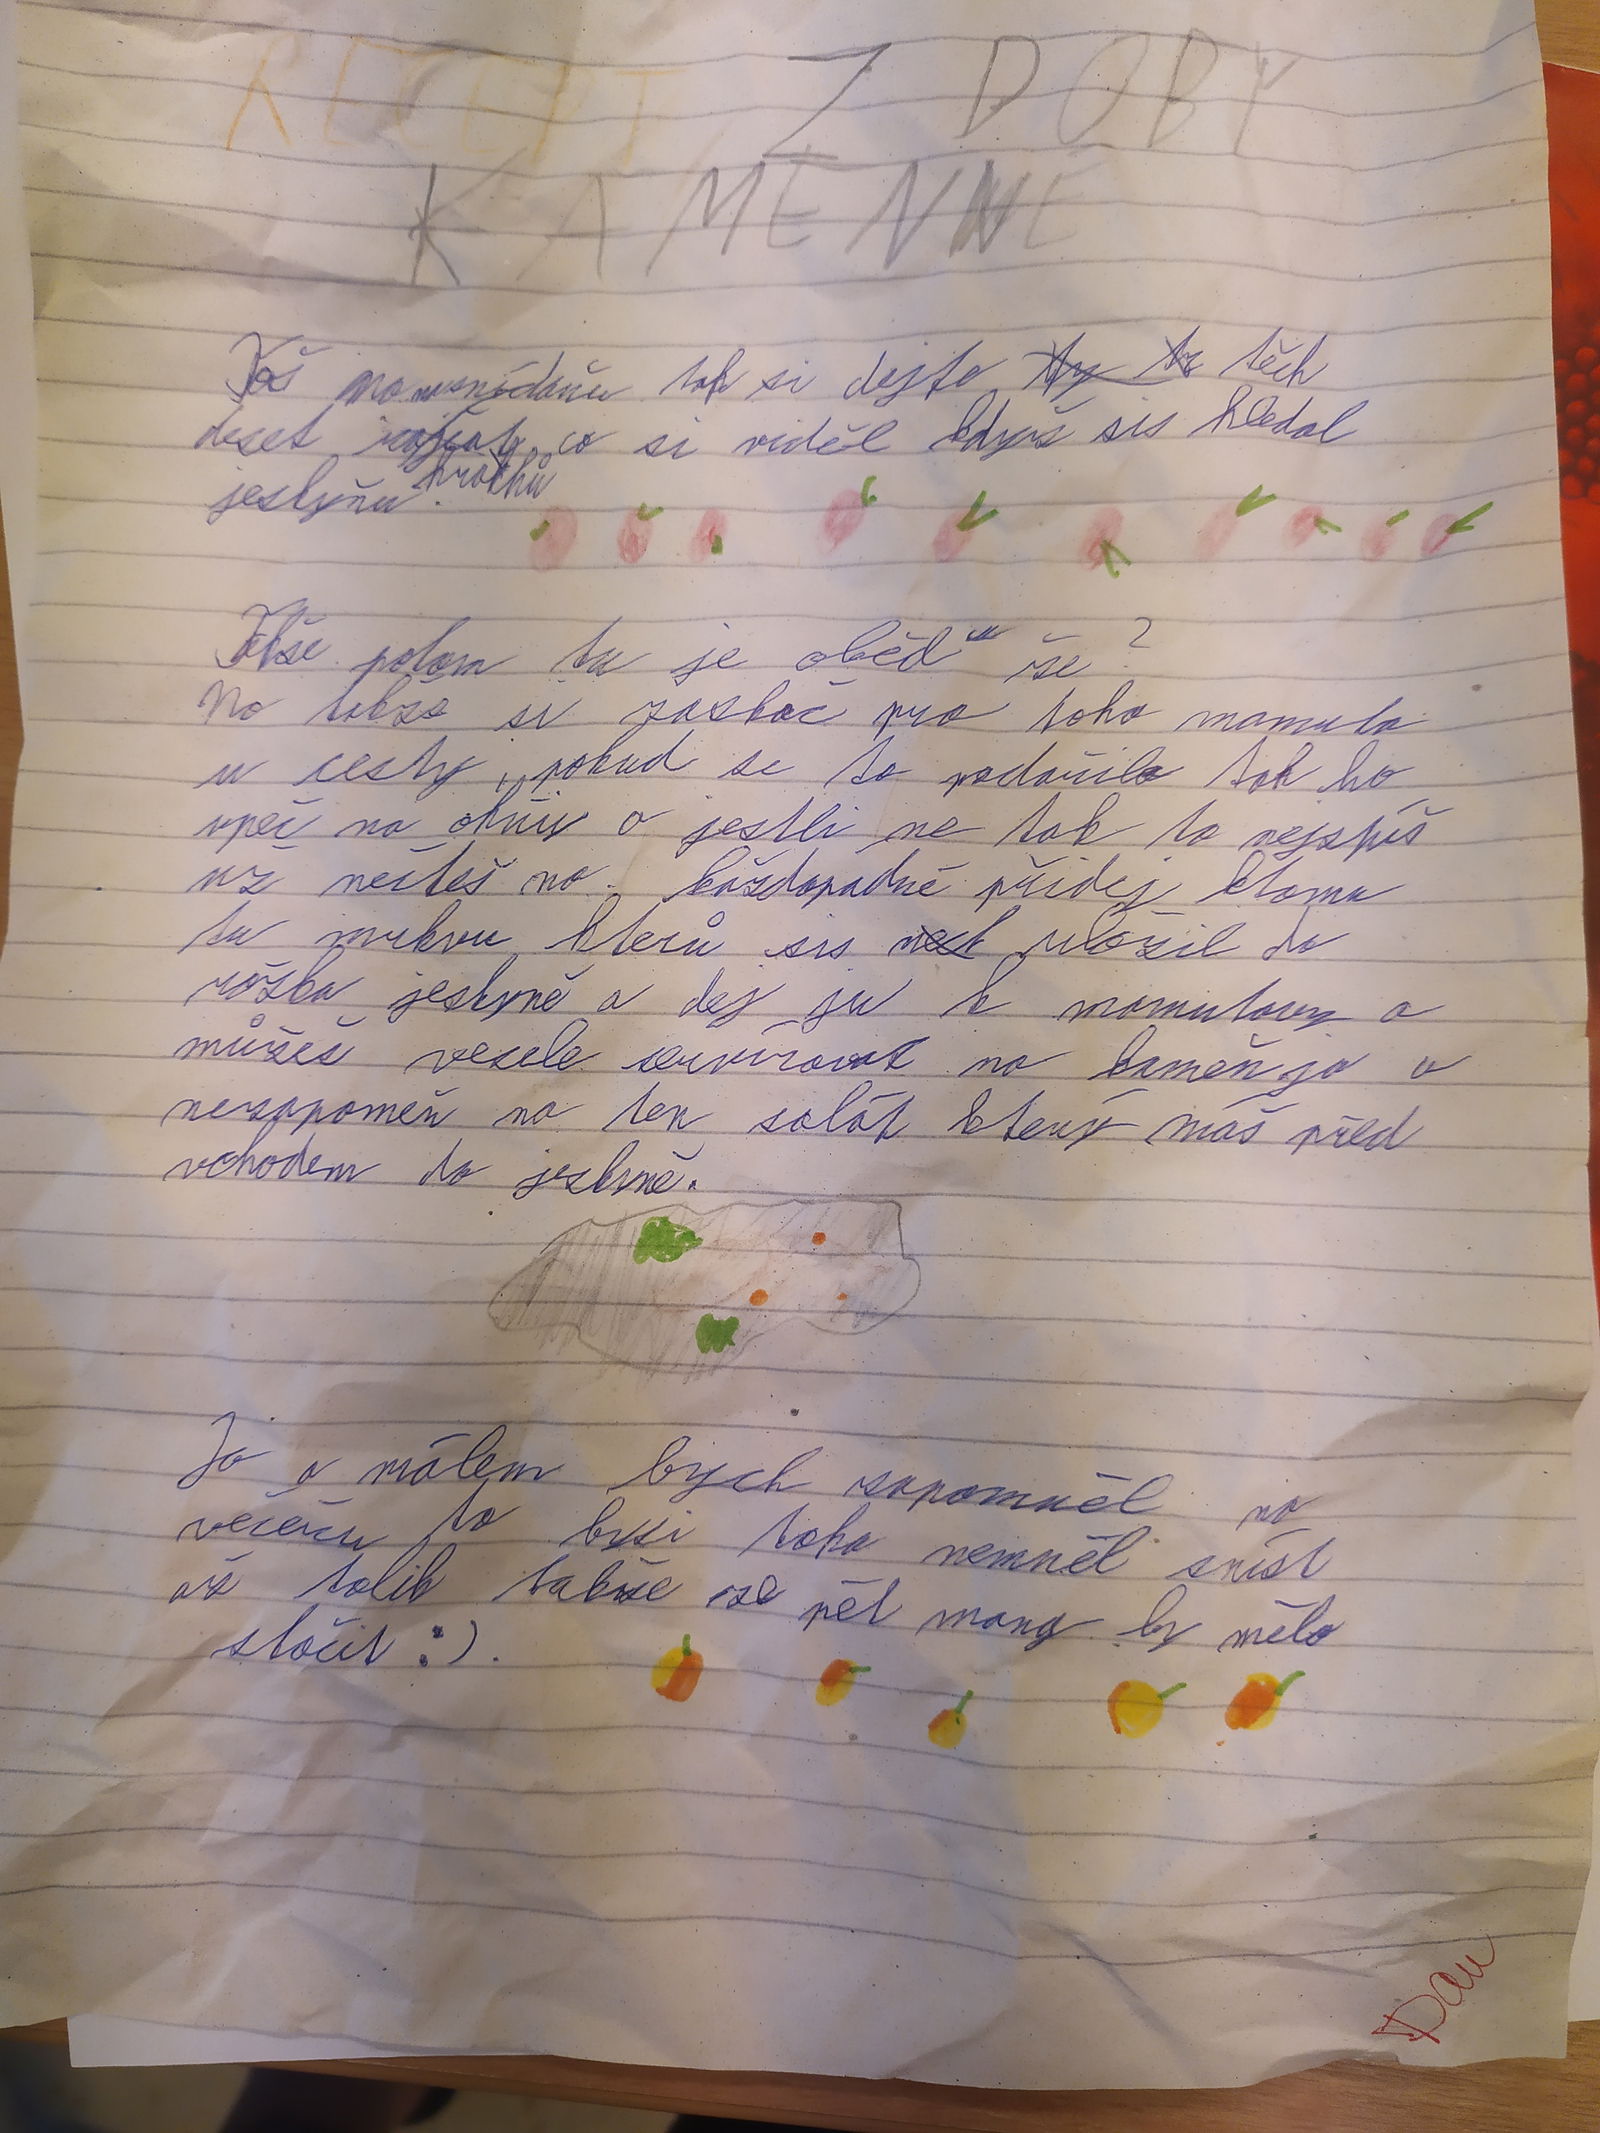 RECEPT Z DOBY
KAMENNE
Još na snídaňu tak si dejte těch
deset co si viděl kdyš sis hledal
jeskyňu. hrachů
potom tu je oběd že?
No takže si zaskoč pro toho mamuta
u cesty, pokud se to podařilo tak ho
upeč na ohňy a jestli ne tak to nejspíš
už nečteš no. každopadně přidej ktomu
tu mrkvu kterů sis uložil do
róžka jeskyně a dej ju k mamutovy a
můžeš vesele servírovat na kameňja a
nezapomeň na ten salát který máš před
vchodem do jeskyně.
Jo a málem bych zapomněl na
večeřu to bysi toho nemněl sníst
až tolik takže pět mang by mělo
stačit :).
Dan